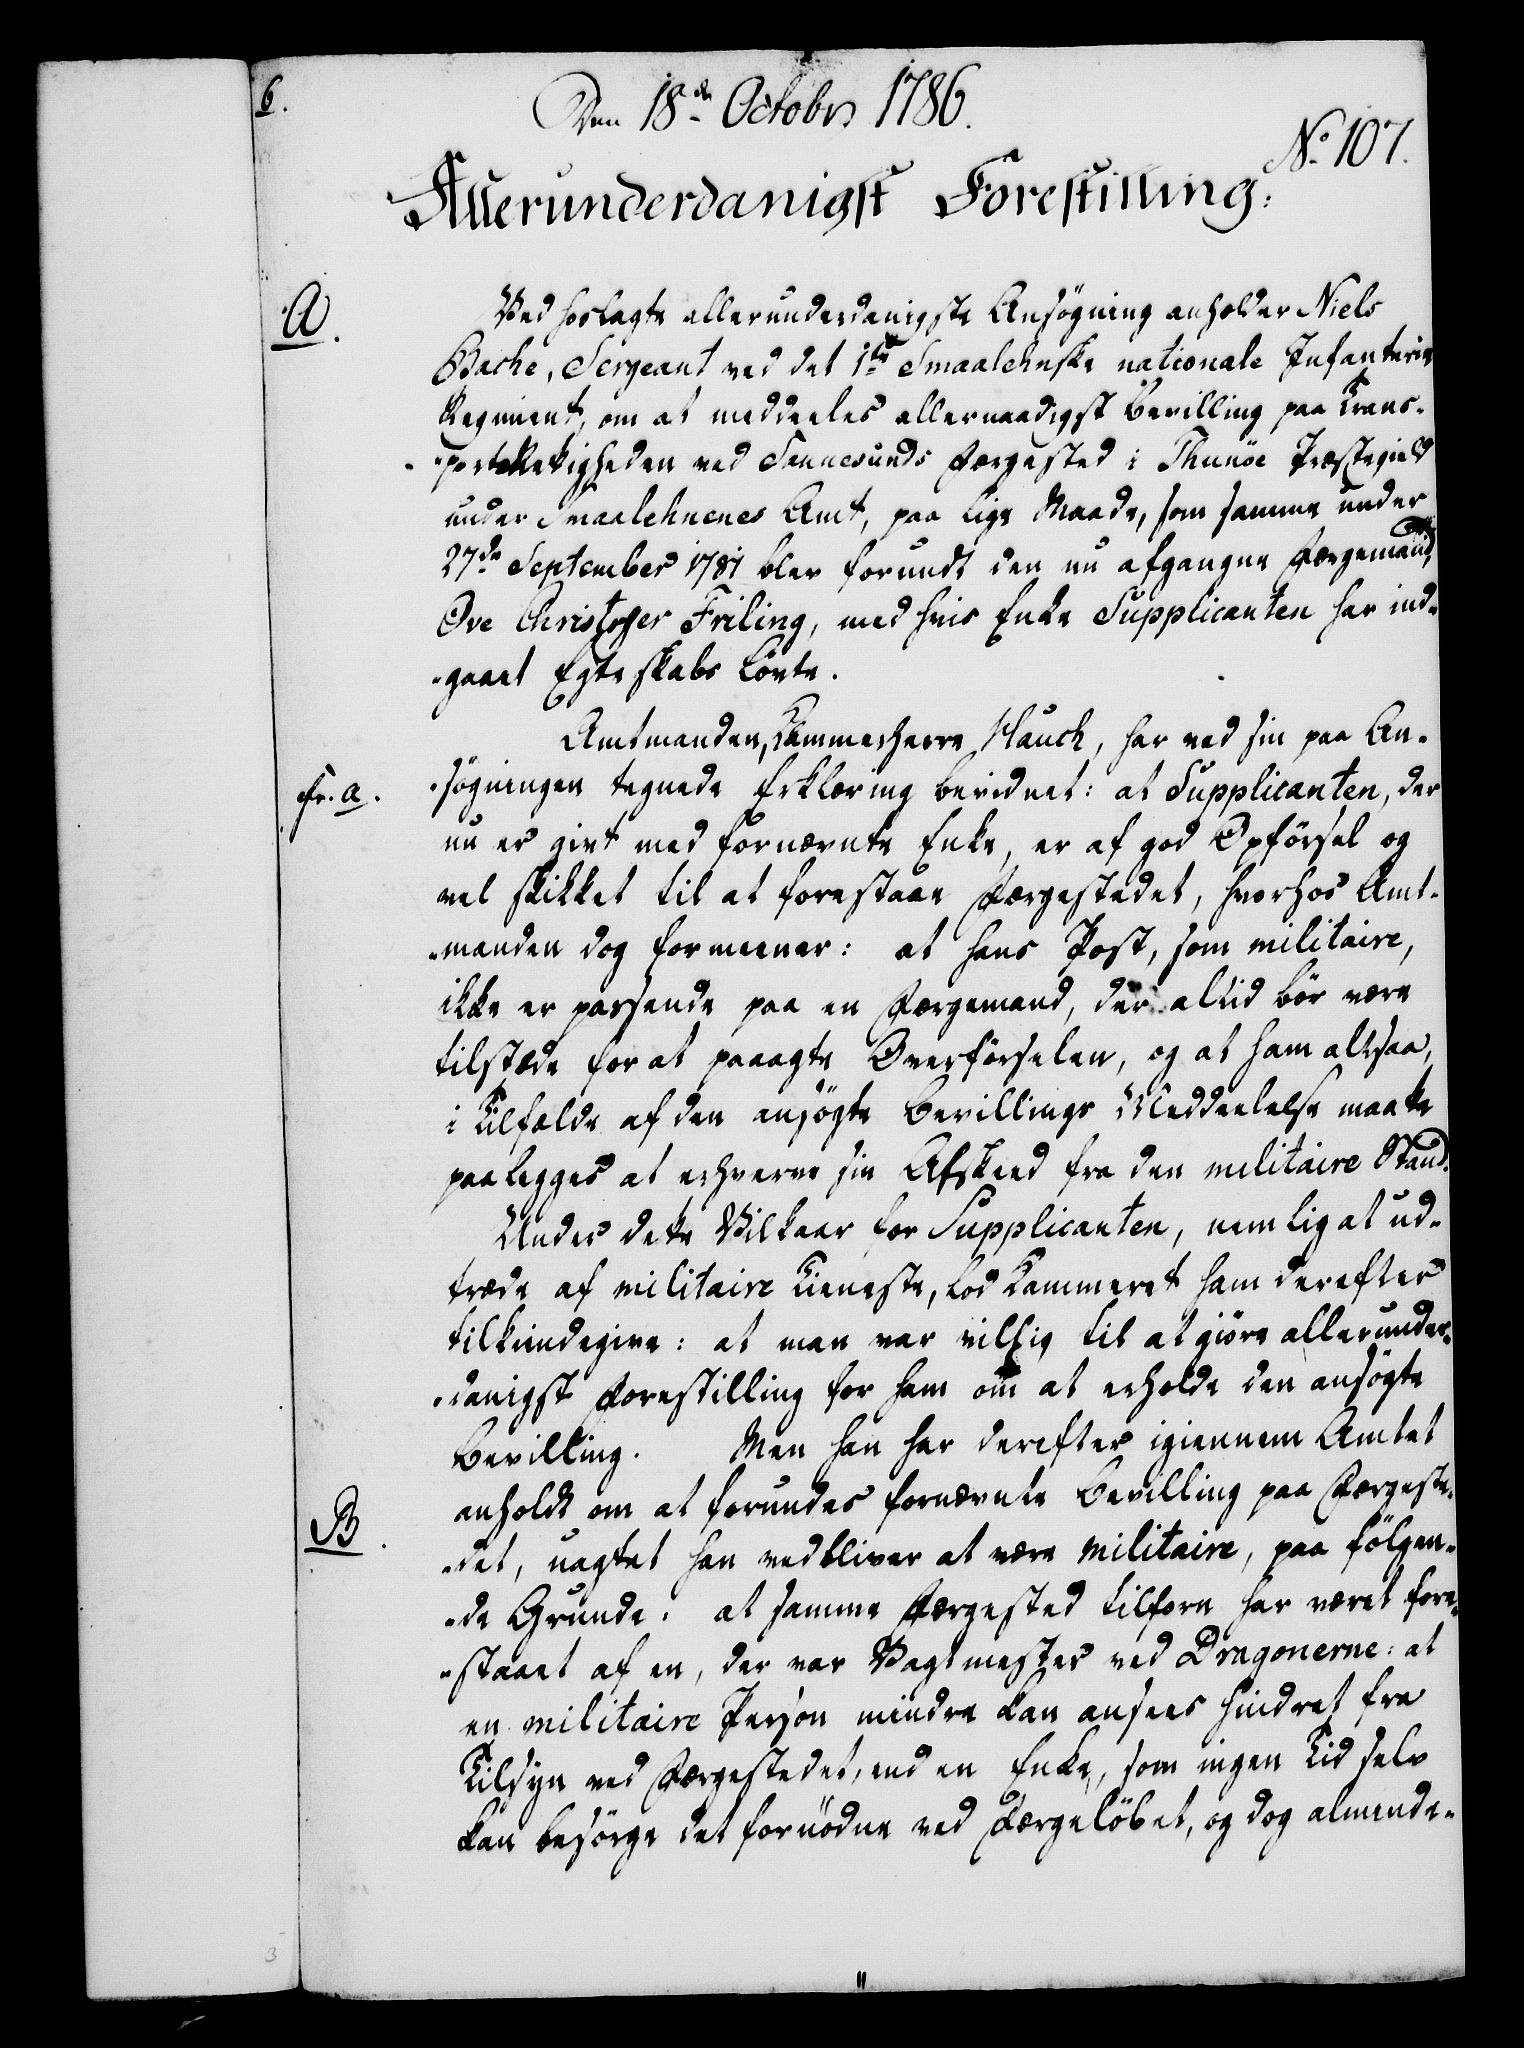 6.
Den 18de Octobr 1786.
No. 107.
Allerunderdanigst Forestilling:
A.
Ved hoslagte allerunderdanigste Ansögning anholder Niels
Bache, Sergeant ved det 1ste Smaalehnske nationale Infanterie
Regiment, om at meddeeles allernaadigst Bevilling paa Trans-
-portRettigheden ved Sannesunds Færgested i Thunöe Præstegield
under Smaalehnenes Amt, paa lige Maade, som samme under
27de September 1781 blev forundt den nu afgangne Færgemand,
Ove Christopher Friling, med hvis Enke Supplicanten har ind-
-gaaet Egteskabs Løvte.
Amtmanden, Kammerherre Hauch, har ved sin paa An-
fr. a.
-søgningen tegnede Erklæring bevidnet: at Supplicanten, der
nu er givt med fornævnte Enke, er af god Opförsel og
vel skikket til at forestaae Færgestedet, hvorhos Amt-
-manden dog formeener: at hans Post, som militaire,
ikke er passende paa en Færgemand, der altid bör være
tilstæde for at paaagte Overförselen, og at ham altsaa,
i Tilfælde af den ansögte Bevillings Meddeelelse maatte
paalegges at erhverve sin Afskeed fra den militaire Stand.
Under dette Vilkaar for Supplicanten, nemlig at ud-
træde af militaire Tieneste, lod Kammeret ham derefter
tilkiendegive: at man var villig til at giöre allerunder-
-danigst Forestilling for ham om at erholde den ansögte
Bevilling. Men han har derefter igiennem Amtet
B.
anholdt om at forundes fornævnte Bevilling paa Færgeste-
-det, uagtet han vedbliver at være militaire, paa fölgen-
-de Grunde: at samme Færgested tilforn har været fore-
-staaet af en, der var Vagtmester ved Dragonerne: at
en militaire Person mindre kan ansees hindret fra
Tilsyn ved Færgestedet, end en Enke, som ingen Tid selv
kan besörge det fornödne ved Færgelöbet, og dog alminde-
3